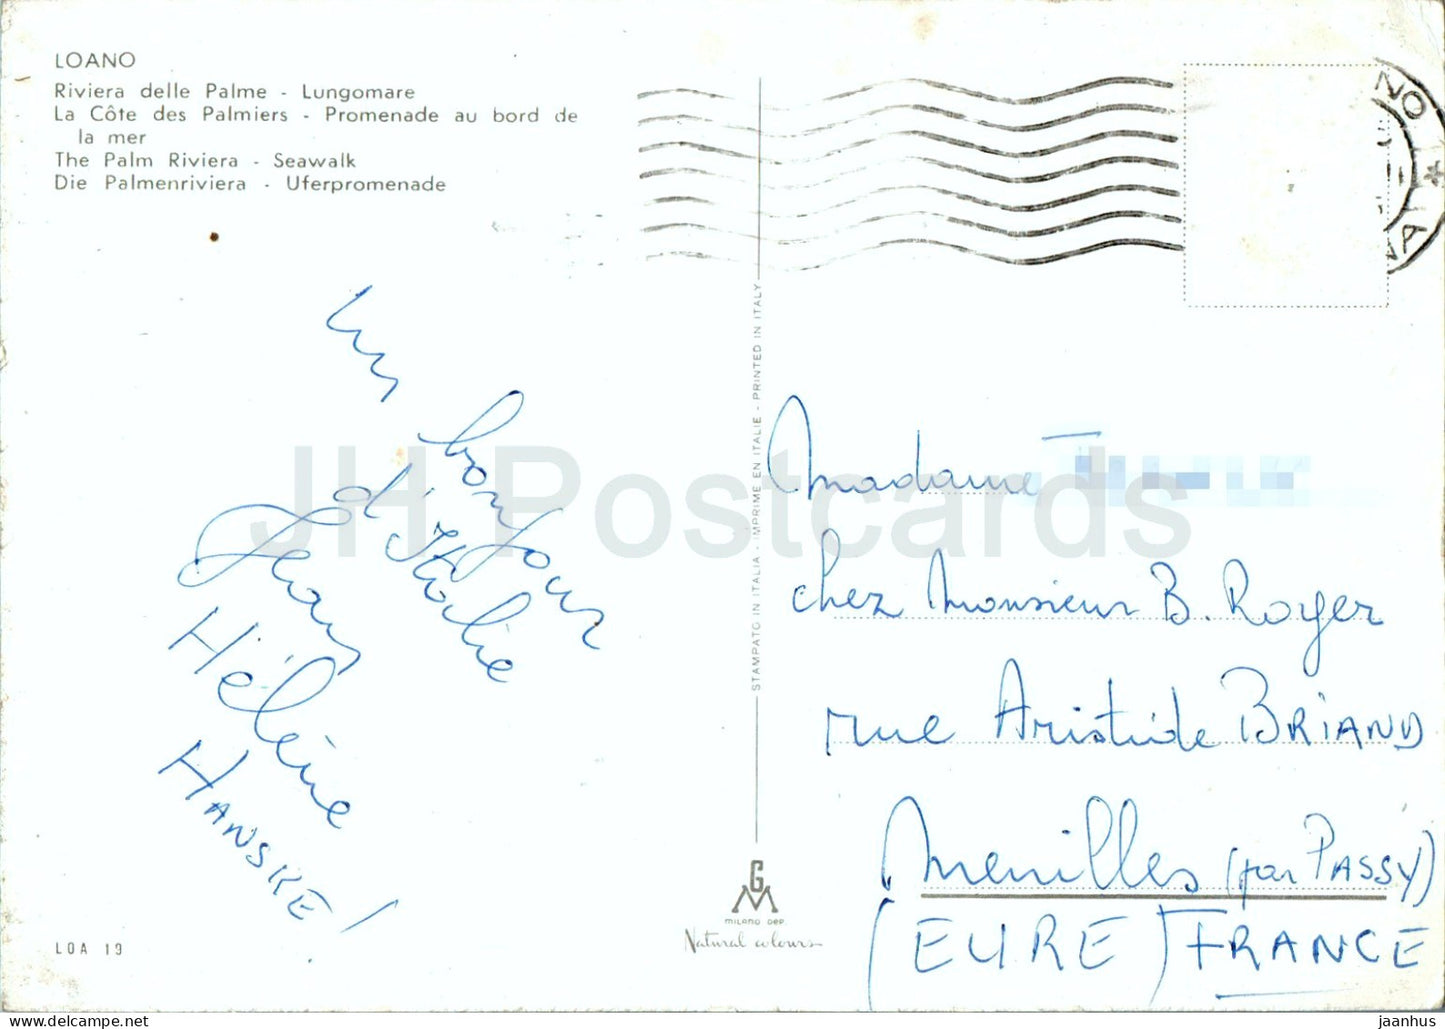 LOANO
Riviera delle Palme - Lungomare
La Côte des Palmiers - Promenade au bord de
la mer
The Palm Riviera - Seawalk
Die Palmenriviera - Uferpromenade
Un bonjour
d'Italie
Jean
Hélène
HANSKE!
LOA 19
STAMPATO IN ITALIA - IMPRIME EN ITALIE - PRINTED IN ITALY
GM
MILANO DEP.
Natural colours
NO
Madame
chez Monsieur B. Royer
rue Aristide BRIAND
Menilles (par PASSY)
(EURE) FRANCE
JH Postcards
jaanhus